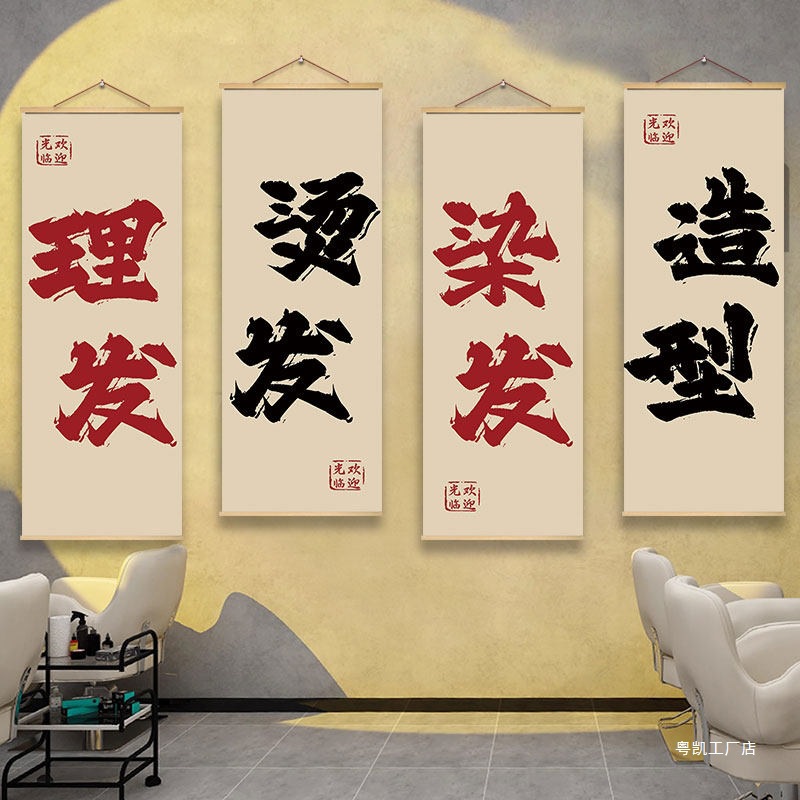 欢迎光临
理发
烫发
欢迎光临
染发
欢迎光临
欢迎光临
造型
粤凯工厂店